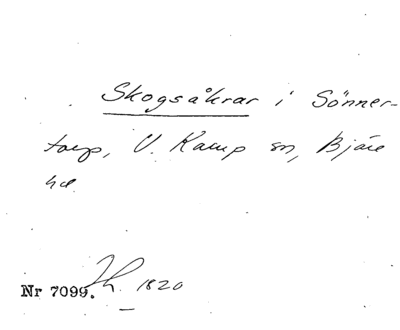 Skogsåkrar i Sönner-
torp, V. Karup sn, Bjäre
hd
Nr 7099. 1820